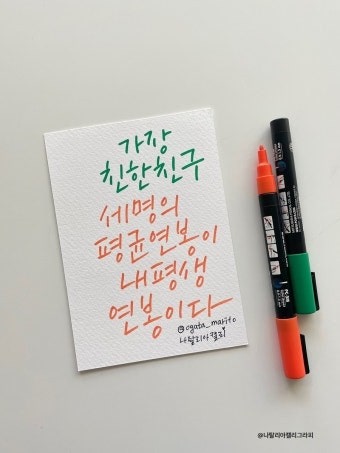 가장
친한친구
세명의
평균연봉이
내평생
연봉이다
@ogata_marito
나탈리아캘리
@나탈리아캘리그라피